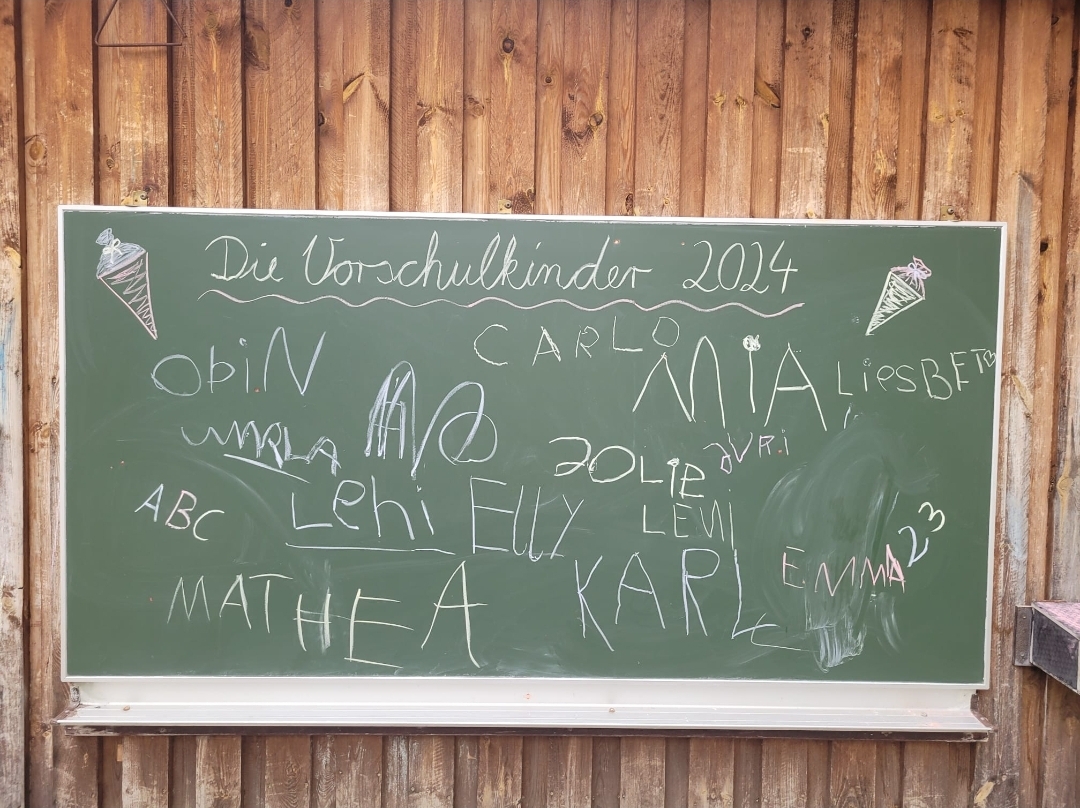 Die Vorschulkinder 2024
CARLO
ObiN
MIA
LiesBETh
MARLA
JOLie
JURi
ABC
Lehi
ELLY
LENI
EMMA
23
MATHEA
KARL